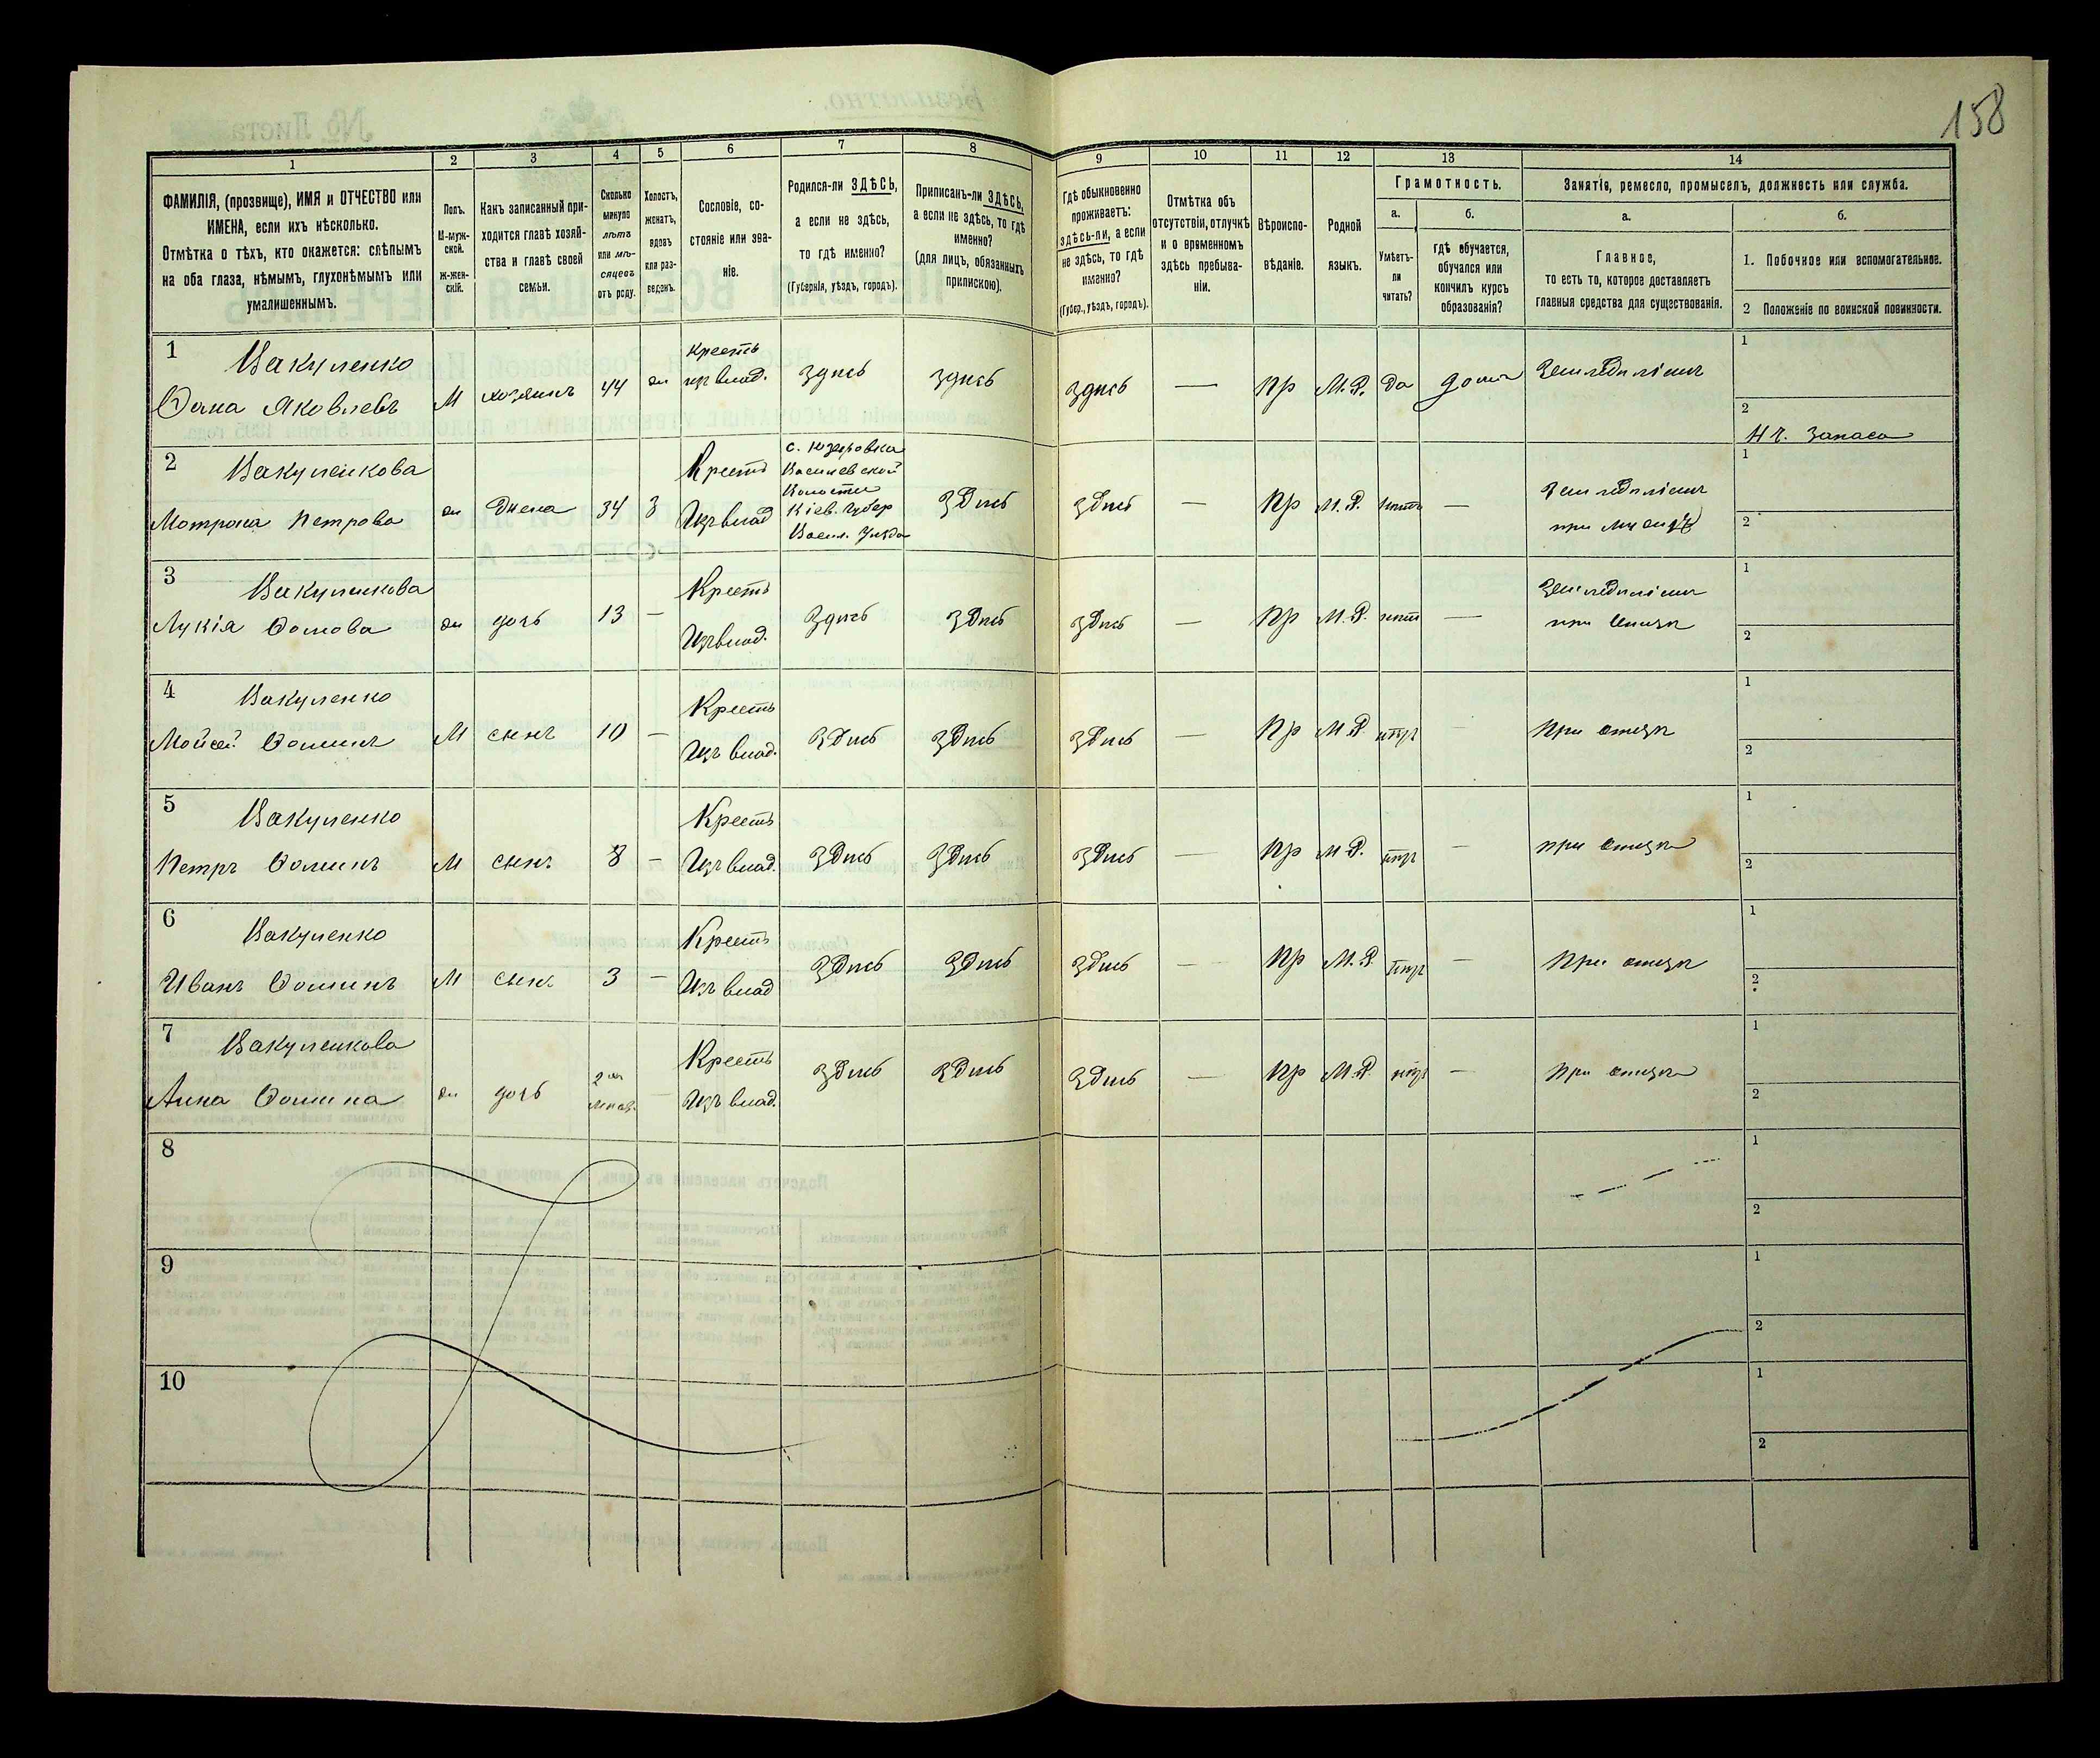 158
1 2 3 4 5 6 7 8 9 10 11 12 13 14
ФАМИЛІЯ, (прозвище), ИМЯ и ОТЧЕСТВО или
ИМЕНА, если ихъ нѣсколько.
Отмѣтка о тѣхъ, кто окажется: слѣпымъ
на оба глаза, нѣмымъ, глухонѣмымъ или
умалишеннымъ.
Полъ.
М-муж-
ской.
Ж-жен-
скій.
Какъ записанный при-
ходится главѣ хозяй-
ства и главѣ своей
семьи.
Сколько
минуло
лѣтъ
или мѣ-
сяцевъ
отъ роду.
Холостъ,
женатъ,
вдовъ
или раз-
веденъ.
Сословіе, со-
стояніе или зва-
ніе.
Родился-ли ЗДѢСЬ,
а если не здѣсь,
то гдѣ именно?
(Губернія, уѣздъ, городъ).
Приписанъ-ли ЗДѢСЬ,
а если не здѣсь, то гдѣ
именно?
(для лицъ, обязанныхъ
припискою).
Гдѣ обыкновенно
проживаетъ:
здѣсь-ли, а если
не здѣсь, то гдѣ
именно?
(Губер., уѣздъ, городъ).
Отмѣтка объ
отсутствіи, отлучкѣ
и о временномъ
здѣсь пребыва-
ніи.
Вѣроиспо-
вѣданіе.
Родной
языкъ.
Грамотность.
а.
Умѣетъ-
ли
читать?
б.
гдѣ обучается,
обучался или
кончилъ курсъ
образованія?
Занятіе, ремесло, промыселъ, должность или служба.
а.
Главное,
то есть то, которое доставляетъ
главныя средства для существованія.
б.
1. Побочное или вспомогательное.
2 Положеніе по воинской повинности.
1 Вакуленко
Ѳома Яковлевъ М хозяинъ 44 ж
кресть
изъ влад. здѣсь здѣсь здѣсь — Пр М.Р. да дома Земледѣліемъ
1
2 Н.ч. запаса
2 Вакуленкова
Мотрона Петрова ж Жена 34 З
Кресть
Изъ влад
Волости
Кіев. Губер
Васил. Уѣзда
Здѣсь Здѣсь — Пр М.Р. нѣтъ —
Земледѣліемъ
при мужѣ
1
2
3 Вакуленкова
Лукія Ѳомова ж дочь 13 —
Кресть
Изъ влад. Здѣсь Здѣсь Здѣсь — Пр М.Р. нѣтъ —
Земледѣліемъ
при отцѣ
1
2
4 Вакуленко
Мойсей Ѳоминъ М сынъ 10 —
Кресть
Изъ влад. Здѣсь Здѣсь Здѣсь — Пр М.Р. нѣтъ — При отцѣ
1
2
5 Вакуленко
Петръ Ѳоминъ М сынъ 8 —
Кресть
Изъ влад. Здѣсь Здѣсь Здѣсь — Пр М.Р. нѣтъ — при отцѣ
1
2
6 Вакуленко
Иванъ Ѳоминъ М сынъ 3 —
Кресть
Изъ влад Здѣсь Здѣсь Здѣсь — Пр М.Р. нѣтъ — При отцѣ
1
2
7 Вакуленкова
Анна Ѳомина ж дочь 2
Кресть
Изъ влад. Здѣсь Здѣсь Здѣсь — Пр М.Р. нѣтъ — При отцѣ
1
2
8
1
2
9
1
2
10
1
2